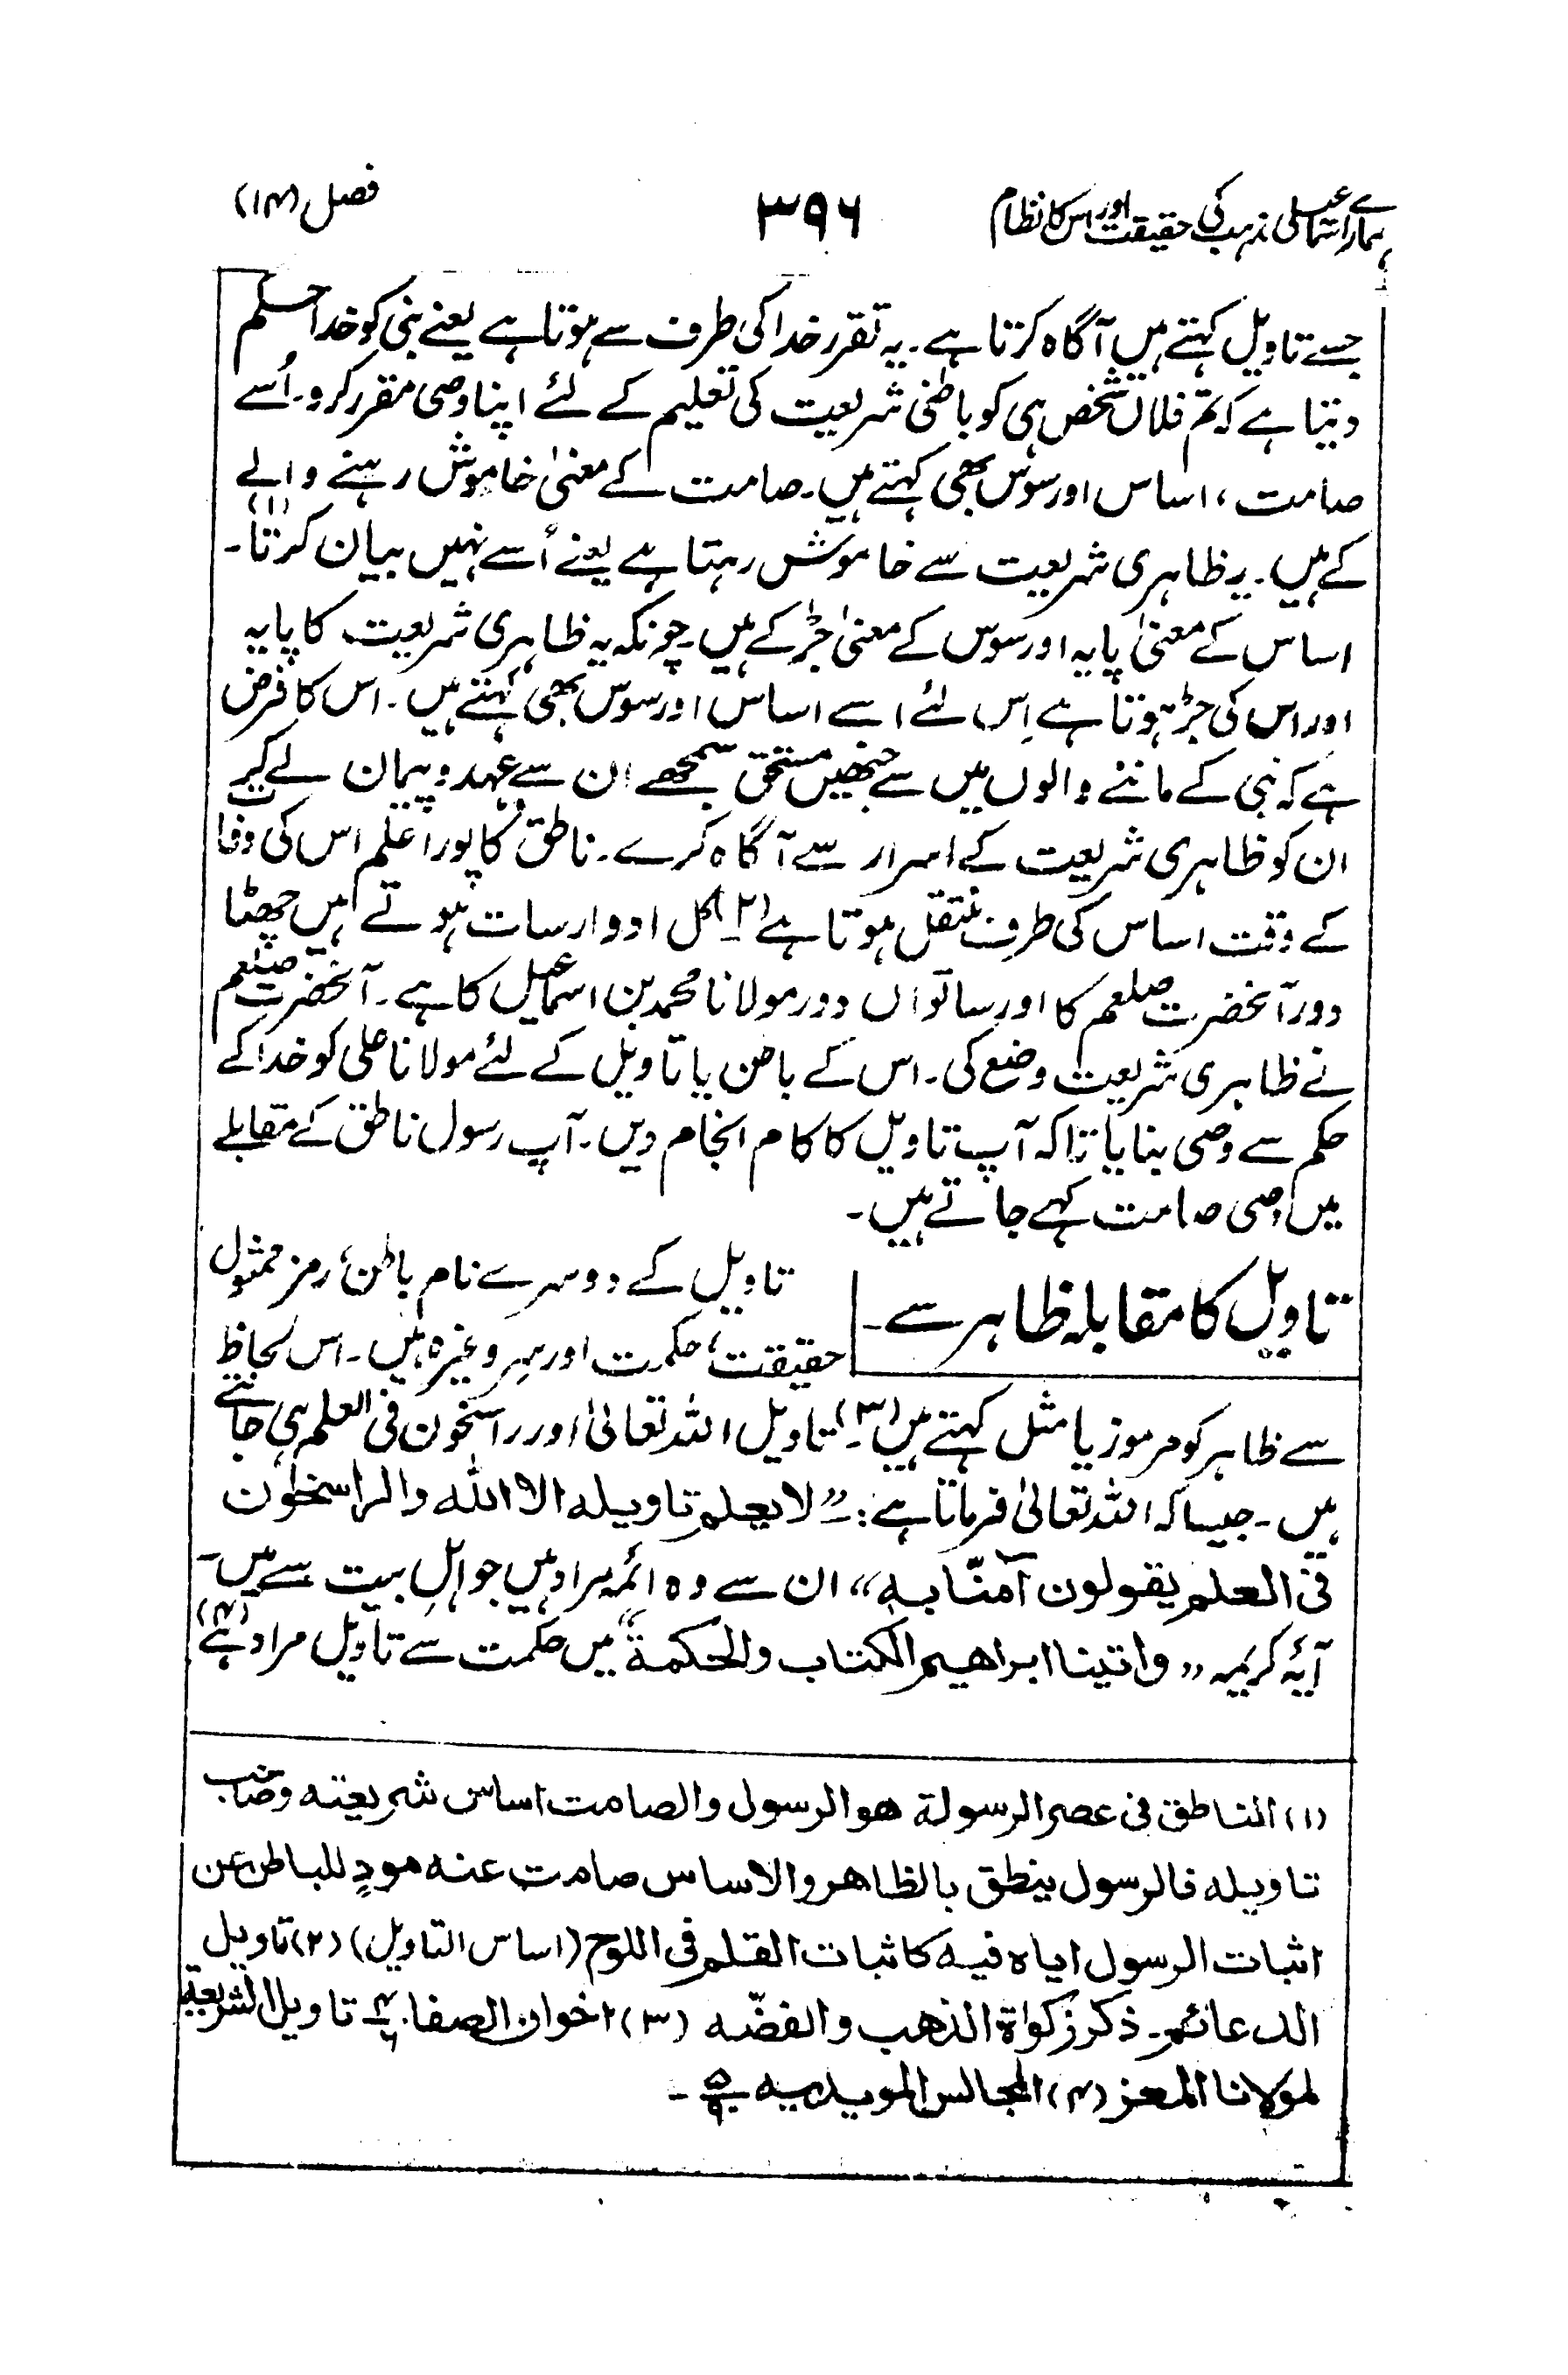 ہمارے اسماعیلی مذہب کی حقیقت اور اس کا نظام ۳۹۶ فصل (۱۴)
جسے تاویل کہتے ہیں آگاہ کرتا ہے۔ یہ تقرر خدا کی طرف سے ہوتا ہے یعنے نبی کو خدا حکم
دیتا ہے کہ تم فلاں شخص ہی کو باطنی شریعت کی تعلیم کے لئے اپنا وصی مقرر کرو۔ اُسے
صامت، اساس اور سوس بھی کہتے ہیں۔ صامت کے معنیٰ خاموش رہنے والے
کے ہیں۔ یہ ظاہری شریعت سے خاموش رہتا ہے یعنے اُسے نہیں بیان کرتا(۱)۔
اساس کے معنیٰ پایہ اور سوس کے معنیٰ جڑ کے ہیں۔ چونکہ یہ ظاہری شریعت کا پایہ
اور اس کی جڑ ہوتا ہے اِس لئے اسے اساس اور سوس بھی کہتے ہیں۔ اس کا فرض
ہے کہ نبی کے ماننے والوں میں سے جنھیں مستحق سمجھے ان سے عہد و پیمان لے کر
ان کو ظاہری شریعت کے اسرار سے آگاہ کرے۔ ناطق کا پورا علم اس کی وفات
کے وقت اساس کی طرف منتقل ہوتا ہے(۲)۔ کل ادوار سات ہوتے ہیں چھٹا
دور آنحضرت صلعم کا اور ساتواں دور مولانا محمد بن اسماعیل کا ہے۔ آنحضرت صلعم
نے ظاہری شریعت وضع کی۔ اس کے باطن یا تاویل کے لئے مولانا علی کو خدا کے
حکم سے وصی بنایا تاکہ آپ تاویل کا کام انجام دیں۔ آپ رسول ناطق کے مقابلے
میں وصی صامت کہے جاتے ہیں۔
تاویل کا مقابلہ ظاہر سے۔
تاویل کے دوسرے نام باطن، رمز ممثول
حقیقت، حکمت اور سِر وغیرہ ہیں۔ اس لحاظ
سے ظاہر کو مرموز یا مثل کہتے ہیں(۳)۔ تاویل اللہ تعالیٰ اور راسخون فی العلم ہی جانتے
ہیں۔ جیسا کہ اللہ تعالیٰ فرماتا ہے:۔ ”لا یعلم تاویلہ الا اللہ والراسخون
فی العلم یقولون آمنّا بہ“ ان سے وہ ائمہ مراد ہیں جو اہلِ بیت سے ہیں۔
آیۂ کریمہ ”واتینا ابراھیم الکتاب والحکمۃ“ میں حکمت سے تاویل مراد ہے(۴)
(۱) الناطق فی عصر الرسولۃ ھو الرسول والصامت اساس شریعتہ وصاحب
تاویلہ فالرسول ینطق بالظاھر والاساس صامت عنہ مودٍ للباطن عن
اثبات الرسول ایاہ فیہ کاثبات القلم فی اللوح (اساس التاویل) (۲) تاویل
الدعائم۔ ذکر زکواۃ الذھب والفضّہ (۳) اخوان الصفا ۴/۶ تاویل الشریعۃ
لمولانا المعز (۴) المجالس المویدیہ ۵/۹۔